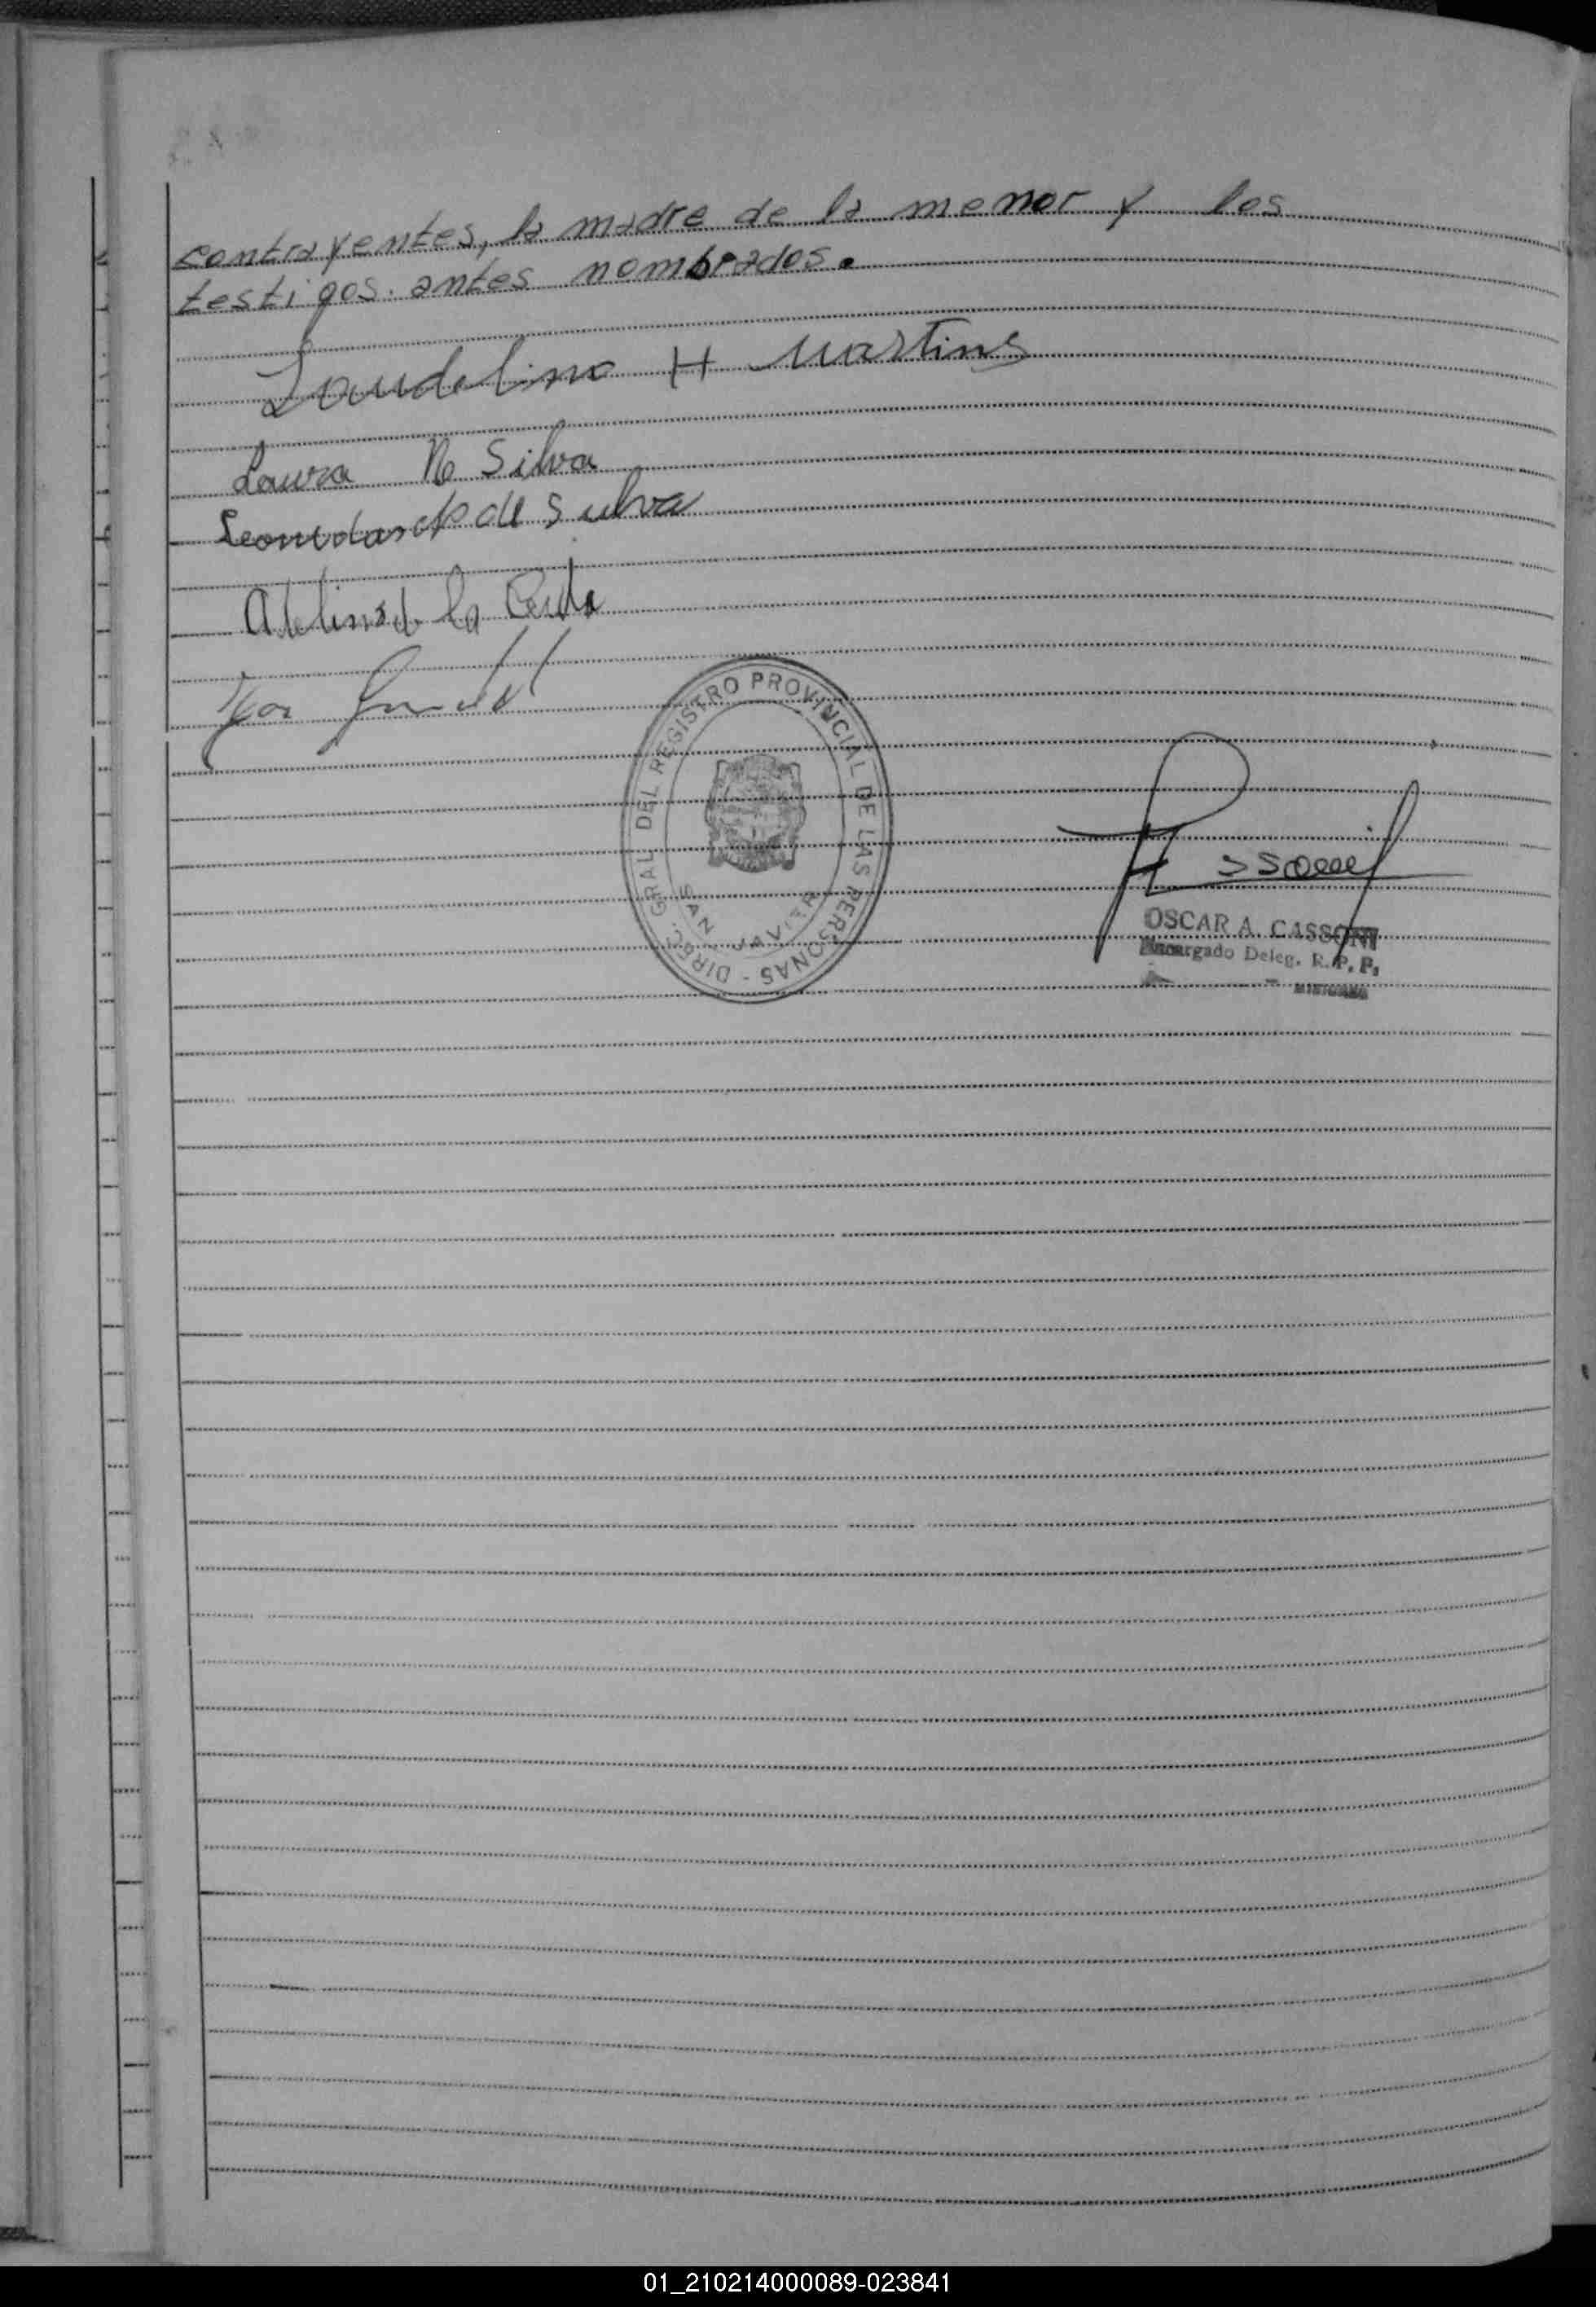 contrayentes, la madre de la menor y los
testigos. antes nombrados.
Laudelino H Martins
Laura N Silva
de Silva
DIREC. GRAL. DEL REGISTRO PROVINCIAL DE LAS PERSONAS -
SAN JAVIER
OSCAR A. CASSONI
Encargado Deleg. R. P. P.
01_210214000089-023841